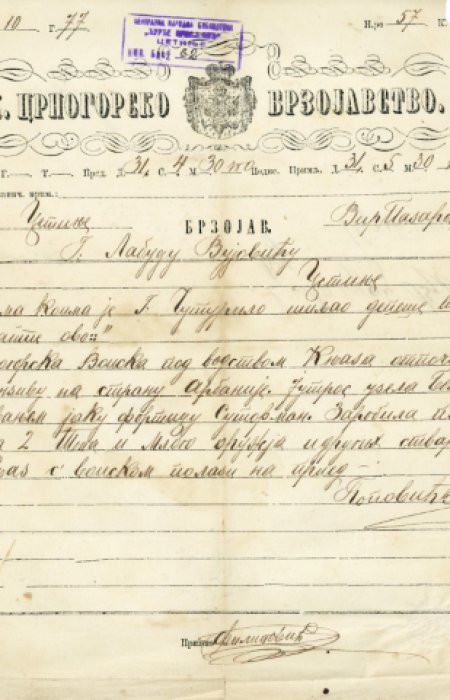 10 Г. 77
Н.ро 57 К
ЦЕНТРАЛНА НАРОДНА БИБЛИОТЕКА
„ЂУРЂЕ ЦРНОЈЕВИЋ“
ЦЕТИЊЕ
ИНВ. БРОЈ 62
К. ЦРНОГОРСКО БРЗОЈАВСТВО.
Г. — Т. — Пред. Д. 31 С. 4 М 30 по Подне. Прим. Д. 31 С. 5 М 30
Цетиње
БРЗОЈАВ.
Вирпазаро
Г. Лабуду Вујовићу
Цетиње
ма коима је Г. шилао депеше
ово:"
горска Воиска под водством Књаза отпоч
на страну Арбаније. Јутрос узела
јаку фортицу Суторман. Заробила
2 и много оружја и других ствар
с воиском полази на пријед —
Поповић
Примио